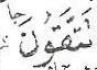 تَتَّقُوْنَ